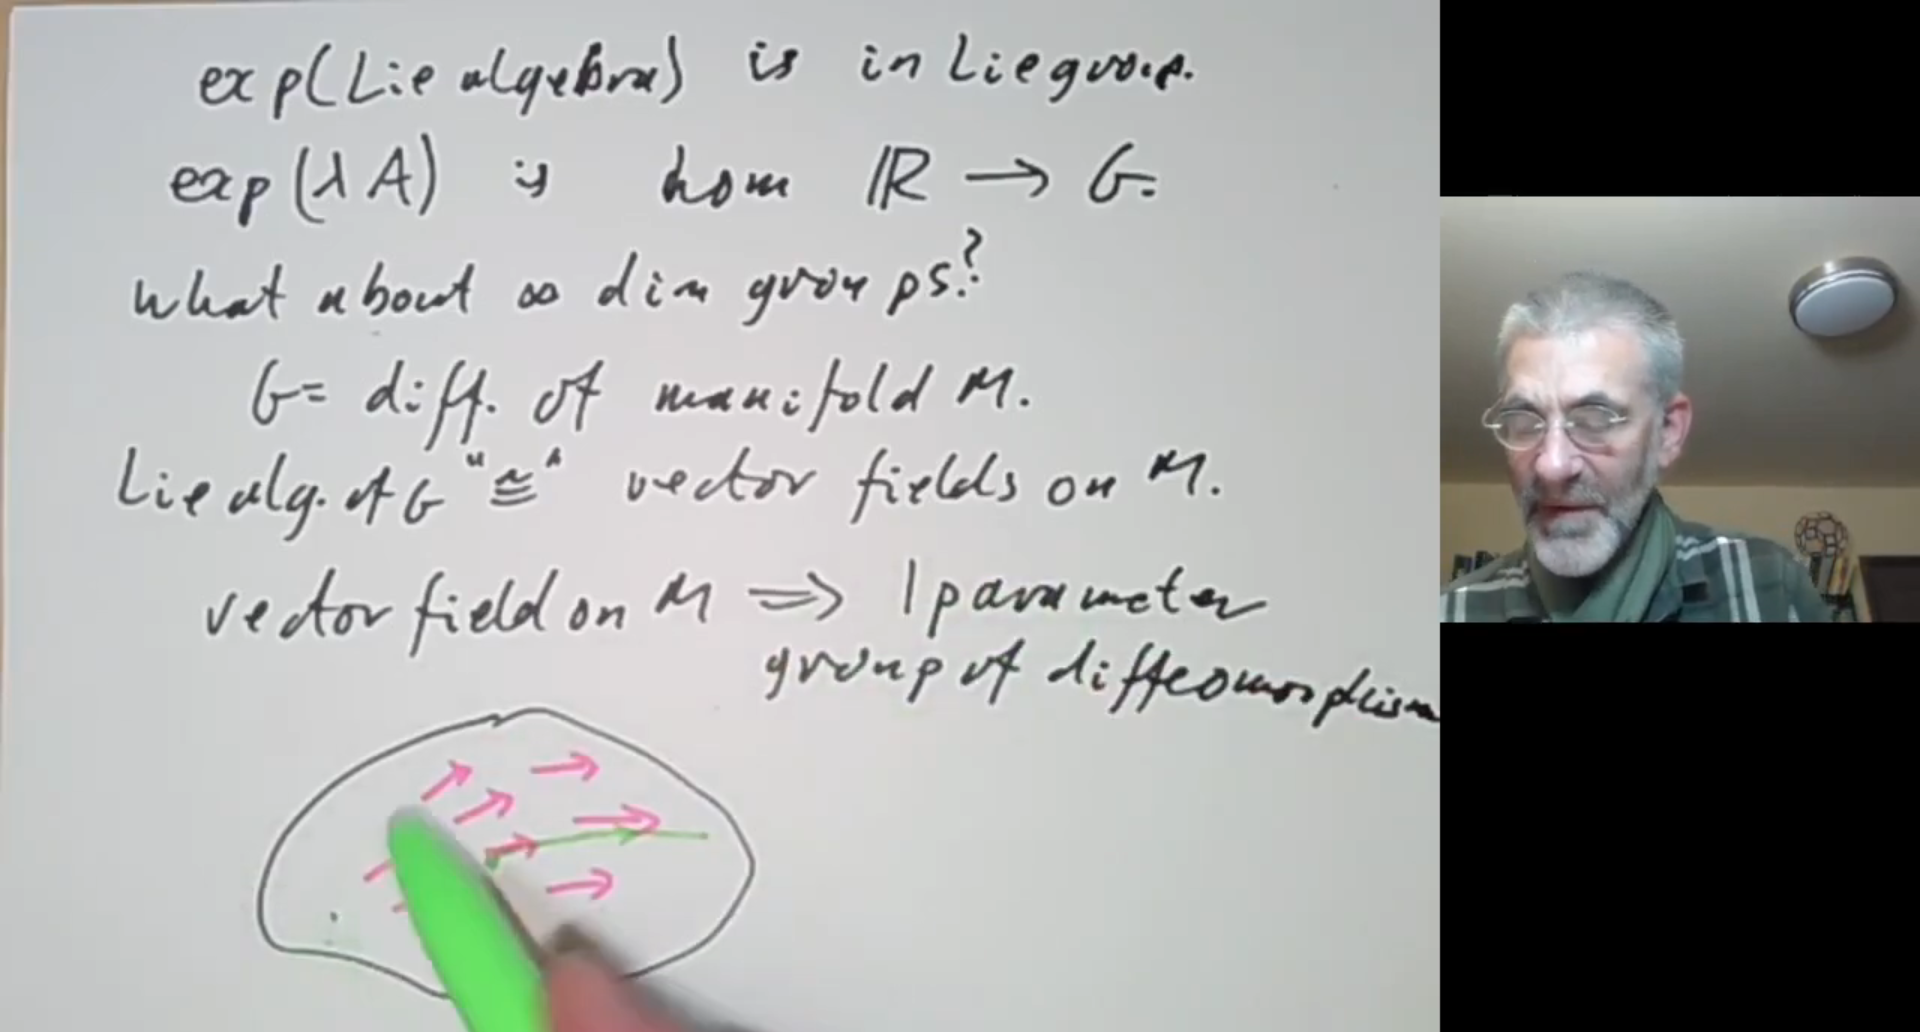 exp(Lie algebra) is in Lie group.
exp(λA) is hom ℝ → G.
What about ∞ dim groups?
G = diff. of manifold M.
Lie alg. of G "≅" vector fields on M.
vector field on M ⇒ 1 parameter
group of diffeomorphism